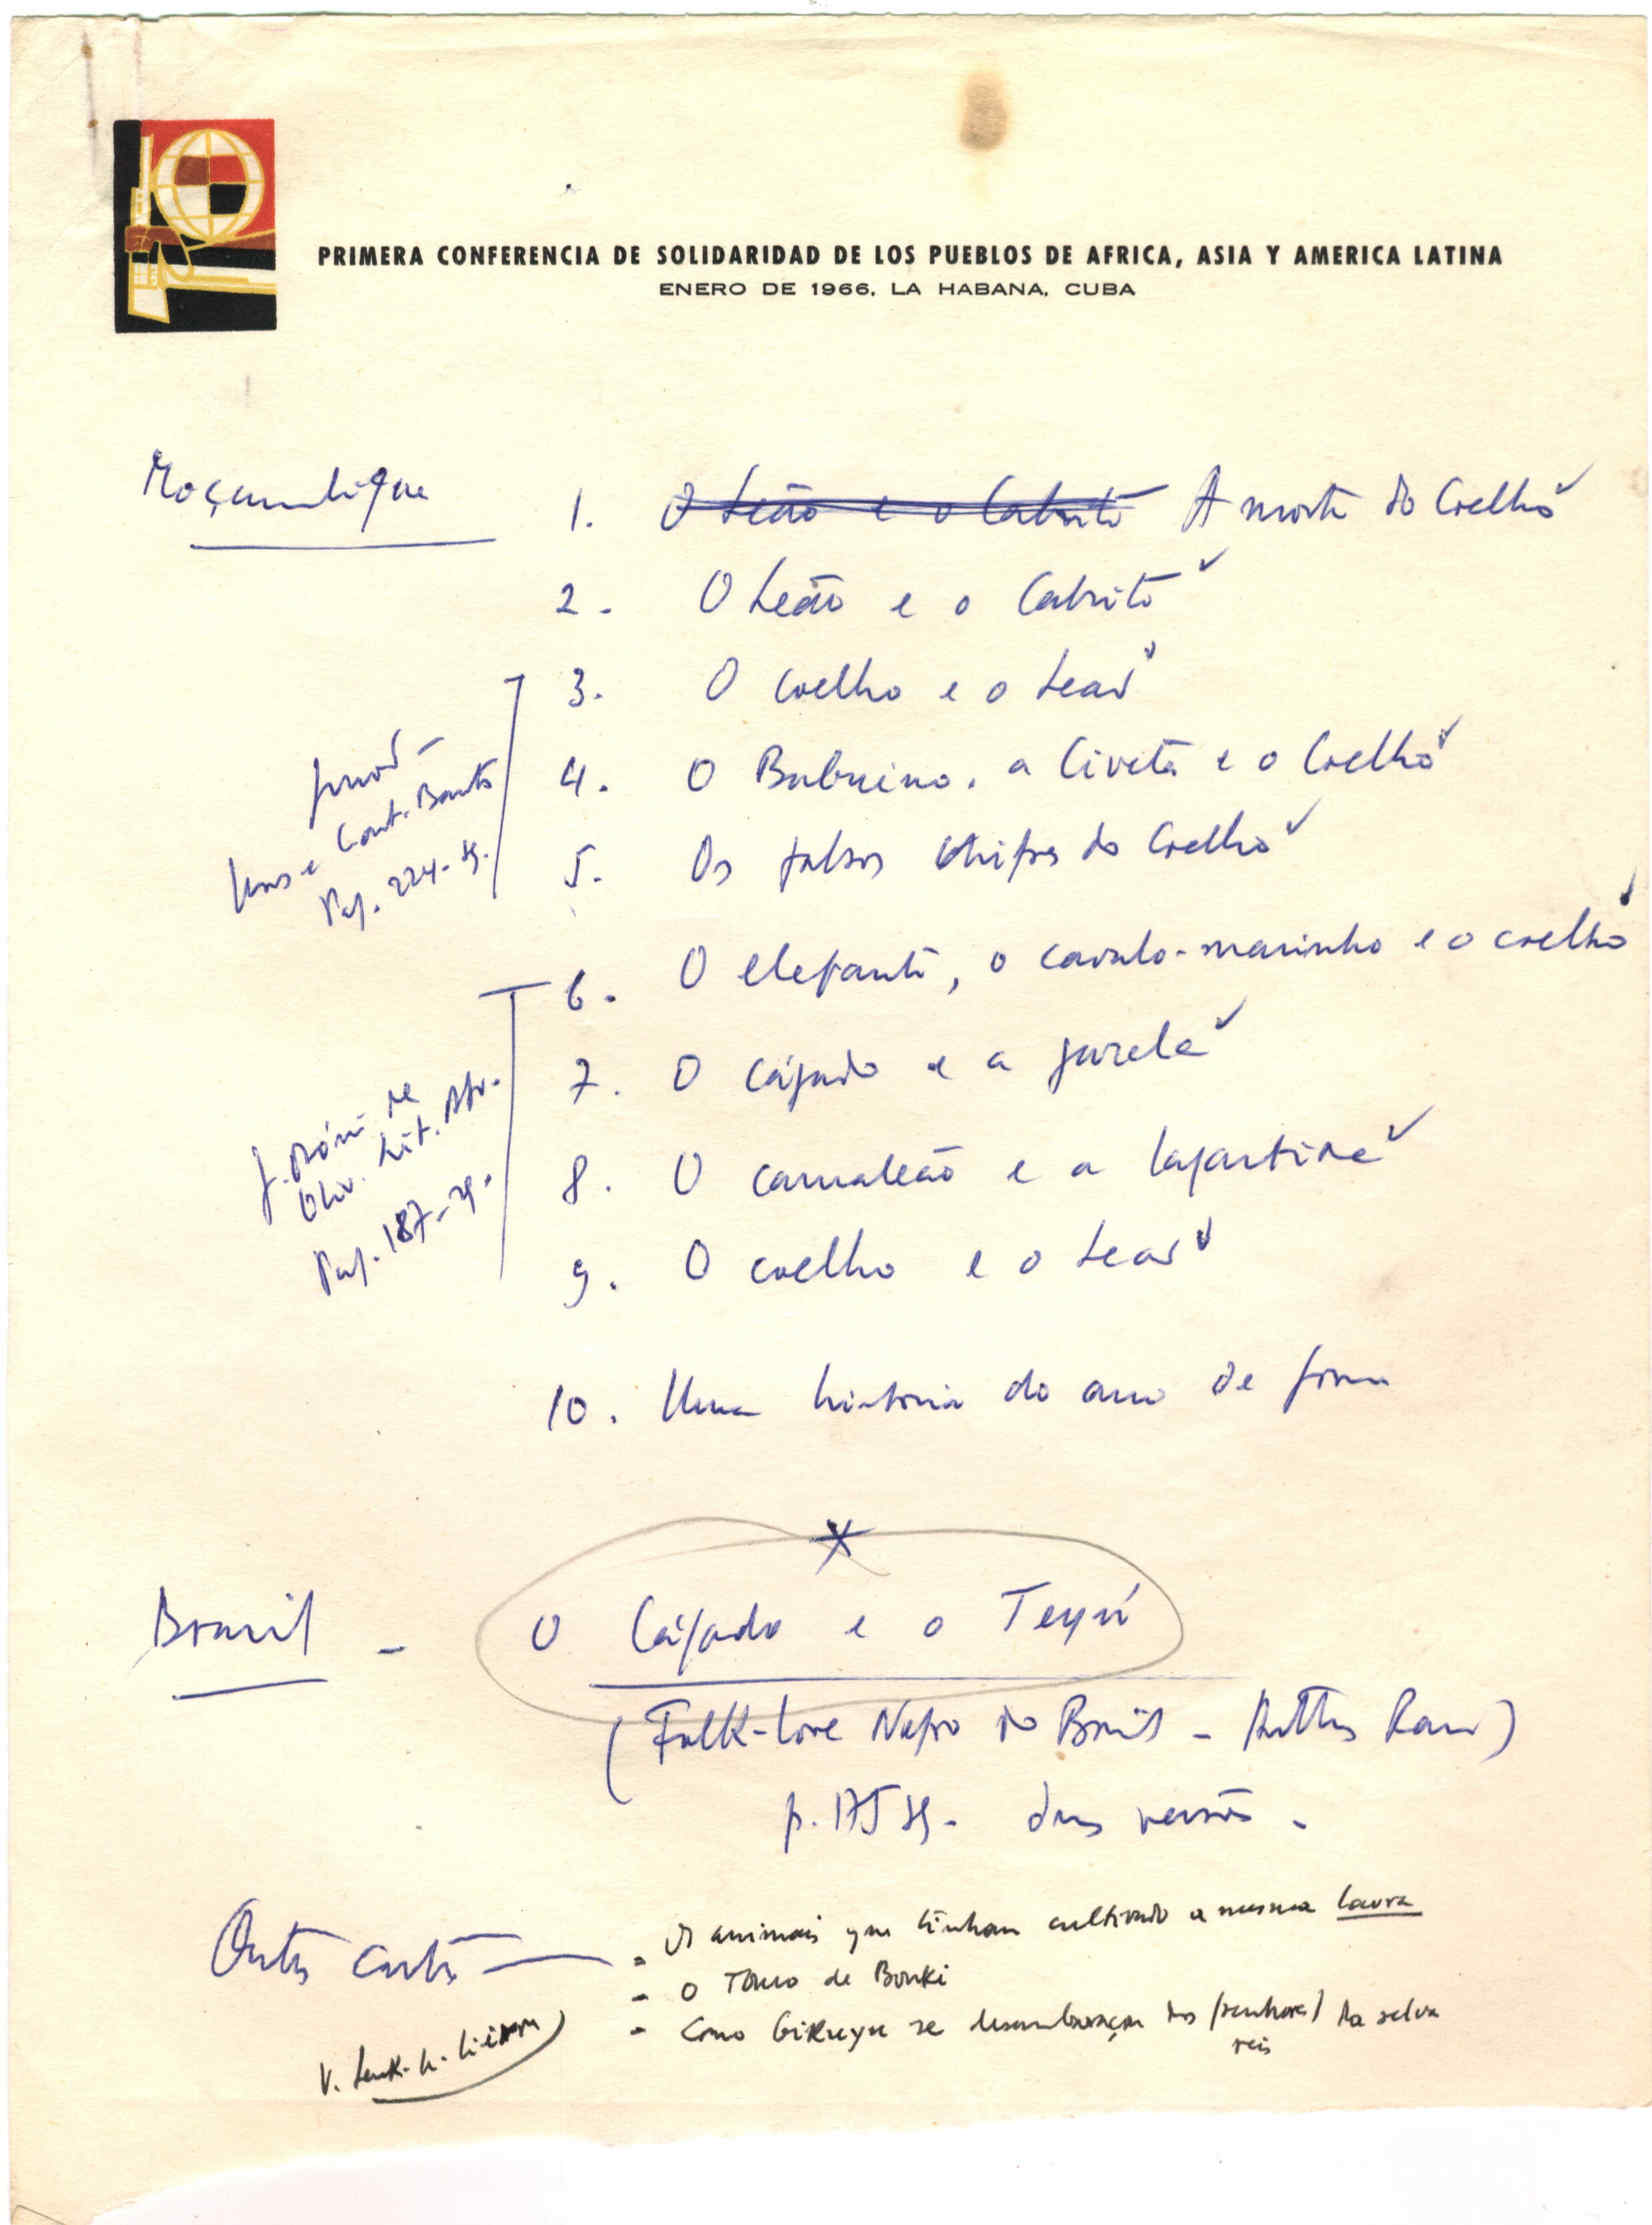 PRIMERA CONFERENCIA DE SOLIDARIDAD DE LOS PUEBLOS DE AFRICA, ASIA Y AMERICA LATINA
ENERO DE 1966, LA HABANA, CUBA
Moçambique
1. O Leão e o Cabrito A morte do Coelho
2. O Leão e o Cabrito
3. O coelho e o Leão
4. O Babuino, a Civeta e o Coelho
5. Os falsos chifres do Coelho
Junod
Cont. Bantos
Pag. 224-sg.
6. O elefante, o cavalo-marinho e o coelho
7. O cágado e a gazela
8. O camaleão e a lagartixa
9. O coelho e o Leão
J. Osório de
Oliv. Lit. Afr.
Pag. 187-sg.
10. Uma história do ano de fome
Brasil - O Cágado e o Teyú
(Folk-lore Negro do Brasil - Arthur Ramos)
p. 175 sg. duas versões.
Outros contos
- Os animais que tinham cultivado a mesma lavra
- O Touro de Bouki
- Como Gikuyu se desembaraçou dos (senhores) da selva
reis
V.